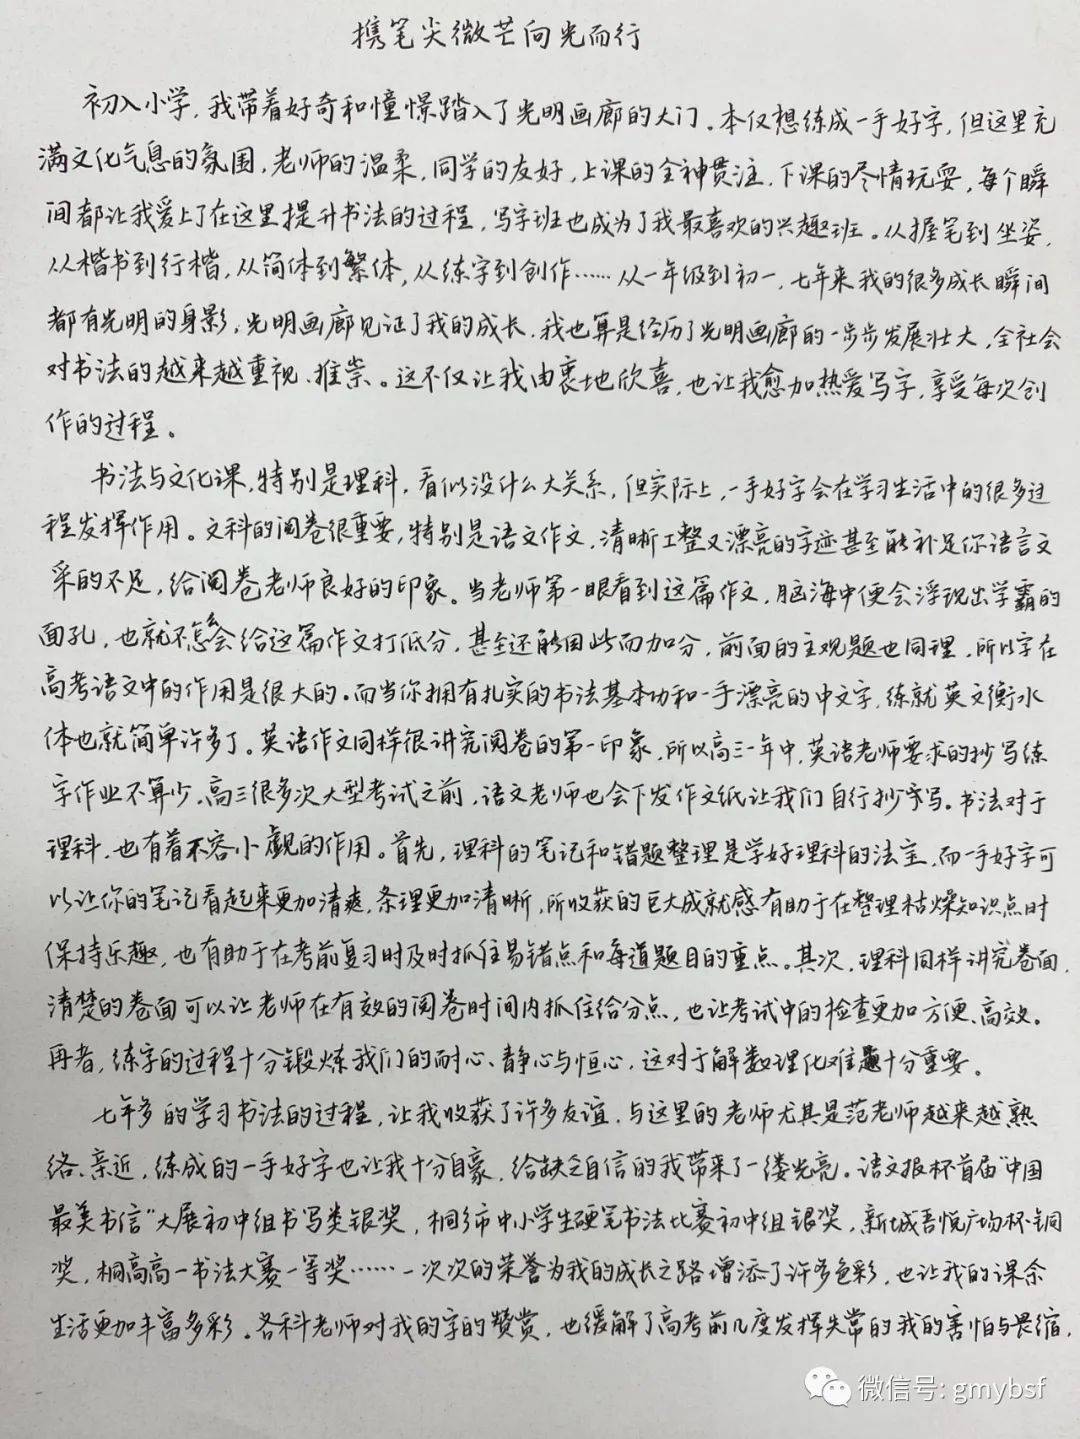 携笔尖微芒向光而行
初入小学，我带着好奇和憧憬踏入了光明画廊的大门。本仅想练成一手好字，但这里充
满文化气息的氛围，老师的温柔，同学的友好，上课的全神贯注，下课的尽情玩耍，每个瞬
间都让我爱上了在这里提升书法的过程，写字班也成为了我最喜欢的兴趣班。从握笔到坐姿，
从楷书到行楷，从简体到繁体，从练字到创作……从一年级到初一，七年来我的很多成长瞬间
都有光明的身影，光明画廊见证了我的成长，我也算是经历了光明画廊的一步步发展壮大，全社会
对书法的越来越重视、推崇。这不仅让我由衷地欣喜，也让我愈加热爱写字，享受每次创
作的过程。
书法与文化课，特别是理科，看似没什么大关系，但实际上，一手好字会在学习生活中的很多过
程发挥作用。文科的阅卷很重要，特别是语文作文，清晰工整又漂亮的字迹甚至能补足你语言文
采的不足，给阅卷老师良好的印象。当老师第一眼看到这篇作文，脑海中便会浮现出学霸的
面孔，也就不怎么会给这篇作文打低分，甚至还能因此而加分，前面的主观题也同理，所以字在
高考语文中的作用是很大的。而当你拥有扎实的书法基本功和一手漂亮的中文字，练就英文衡水
体也就简单许多了。英语作文同样很讲究阅卷的第一印象，所以高三一年中，英语老师要求的抄写练
字作业不算少。高三很多次大型考试之前，语文老师也会下发作文纸让我们自行抄写。书法对于
理科，也有着不容小觑的作用。首先，理科的笔记和错题整理是学好理科的法宝，而一手好字可
以让你的笔记看起来更加清爽，条理更加清晰，所收获的巨大成就感有助于在整理枯燥知识点时
保持乐趣，也有助于在考前复习时及时抓住易错点和每道题目的重点。其次，理科同样讲究卷面，
清楚的卷面可以让老师在有效的阅卷时间内抓住给分点，也让考试中的检查更加方便、高效。
再者，练字的过程十分锻炼我们的耐心、静心与恒心，这对于解数理化难题十分重要。
七年多的学习书法的过程，让我收获了许多友谊，与这里的老师尤其是范老师越来越熟
络、亲近，练成的一手好字也让我十分自豪，给缺乏自信的我带来了一缕光亮。语文报杯首届“中国
最美书信”大展初中组书写类银奖，桐乡市中小学生硬笔书法比赛初中组银奖，新城吾悦广场杯铜
奖，桐高高一书法大赛一等奖……一次次的荣誉为我的成长之路增添了许多色彩，也让我的课余
生活更加丰富多彩。各科老师对我的字的赞赏，也缓解了高考前几度发挥失常的我的害怕与畏缩，
微信号: gmybsf